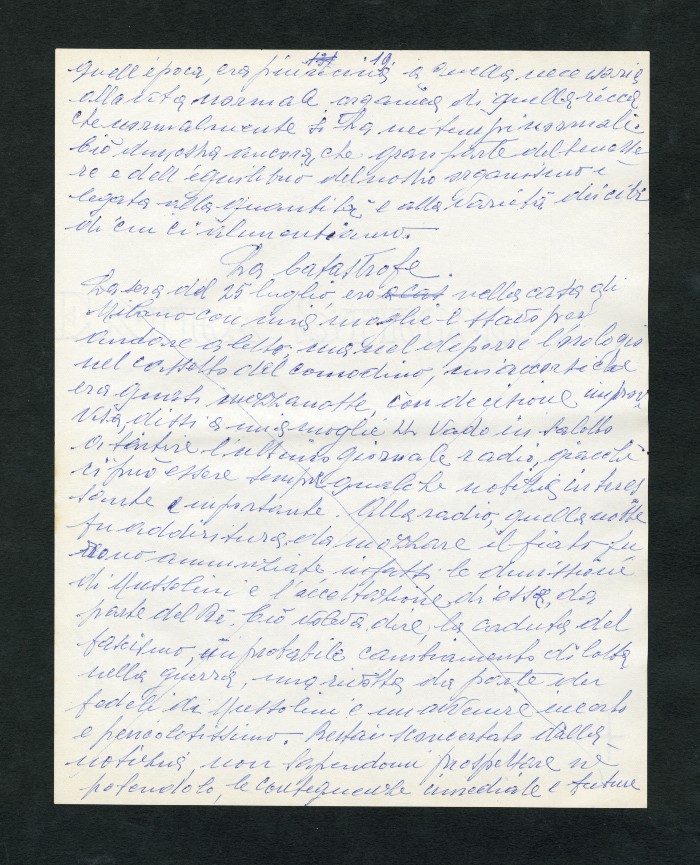 19.
quell'epoca, era più vicina a quella necessaria
alla vita normale organica di quella ricca
che normalmente si ha nei tempi normali.
Ciò dimostra ancora, che gran parte del benesse
re e dell'equilibrio del nostro organismo è
legata alla quantità e alla varietà dei cibi
di cui ci alimentiamo.
La Catastrofe.
La sera del 25 luglio, ero nella casa di
Milano con mia moglie e stavo per
andare a letto, ma nel deporre l'orologio
nel cassetto del comodino, mi accorsi che
era quasi mezzanotte, con decisione improv
visa, dissi a mia moglie Vado in salotto
a sentire l'ultimo giornale radio, giacchè
ci può essere sempre qualche notizia interes
sante e importante. Alla radio, quella notte
fu addirittura da mozzare il fiato fu
rono annunziate infatti le dimissioni
di Mussolini e l'accettazione di esse, da
parte del Re. Ciò voleva dire, la caduta del
fascismo, un probabile cambiamento di lotta
nella guerra, una riscossa da parte dei
fedeli di Mussolini e un avvenire incerto
e pericolosissimo. Restai sconcertato dalla
notizia, non sapendomi prospettare nè
potendolo, le conseguenze immediate e future